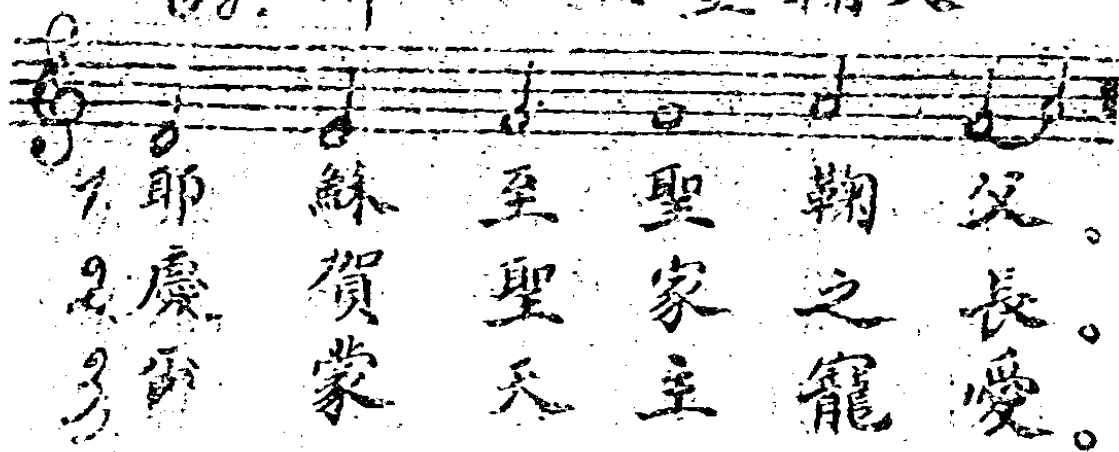 1. 耶穌至聖鞠父。
2. 慶賀聖家之長。
3. 爾蒙天主寵愛。